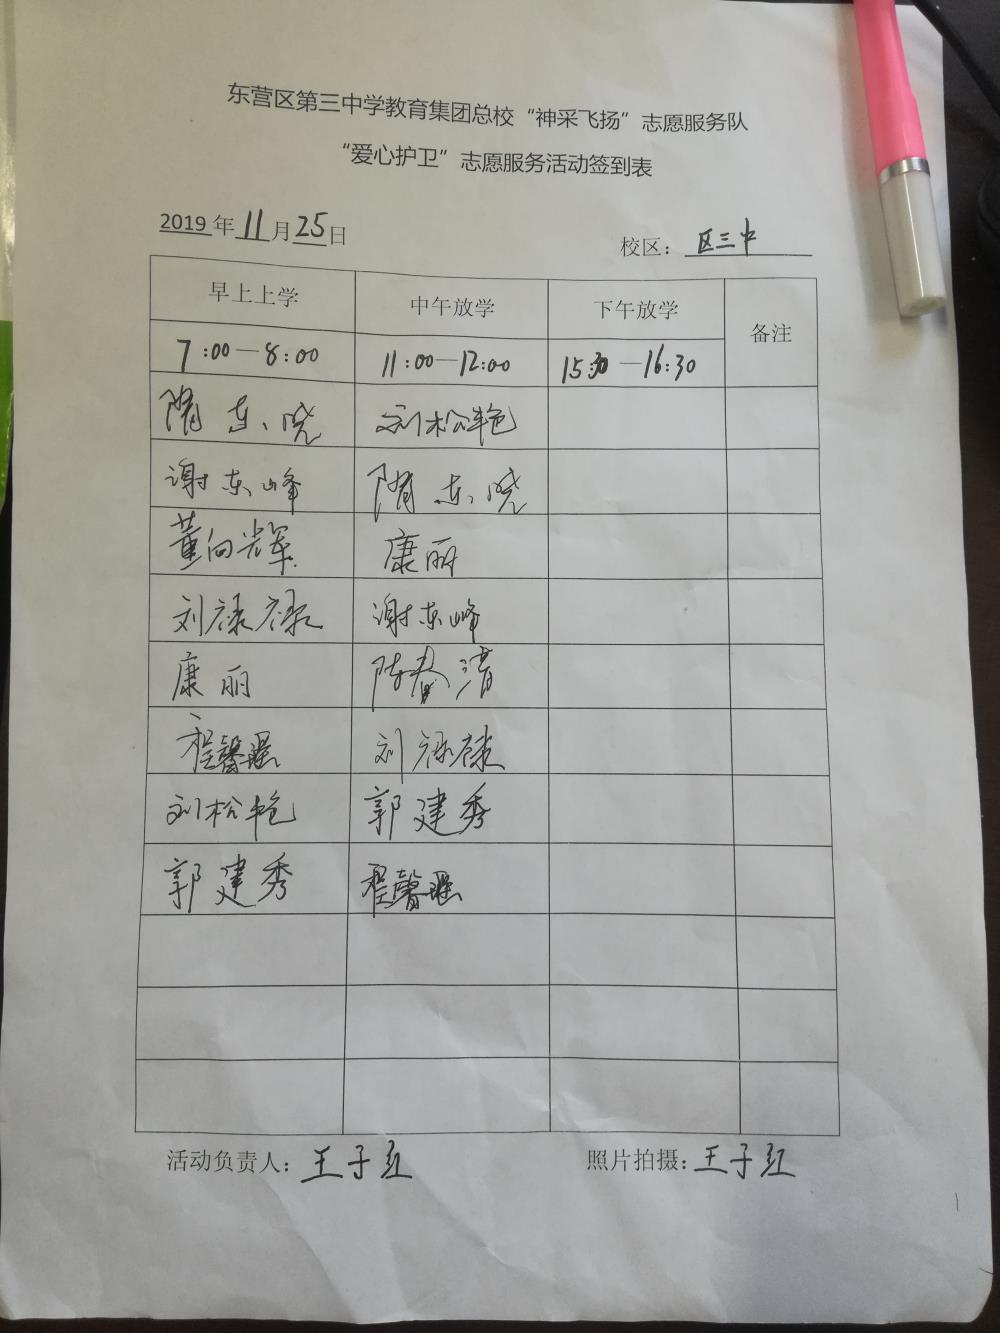 东营区第三中学教育集团总校“神采飞扬”志愿服务队
“爱心护卫”志愿服务活动签到表
2019年11月25日 校区：区三中
早上上学 中午放学 下午放学 备注
7:00—8:00 11:00—12:00 15:30—16:30
隋东晓 刘松艳
谢东峰 隋东晓
董向辉 康丽
刘禄禄 谢东峰
康丽 陈春清
程馨瑶 刘禄禄
刘松艳 郭建秀
郭建秀 程馨瑶
活动负责人：王子红 照片拍摄：王子红